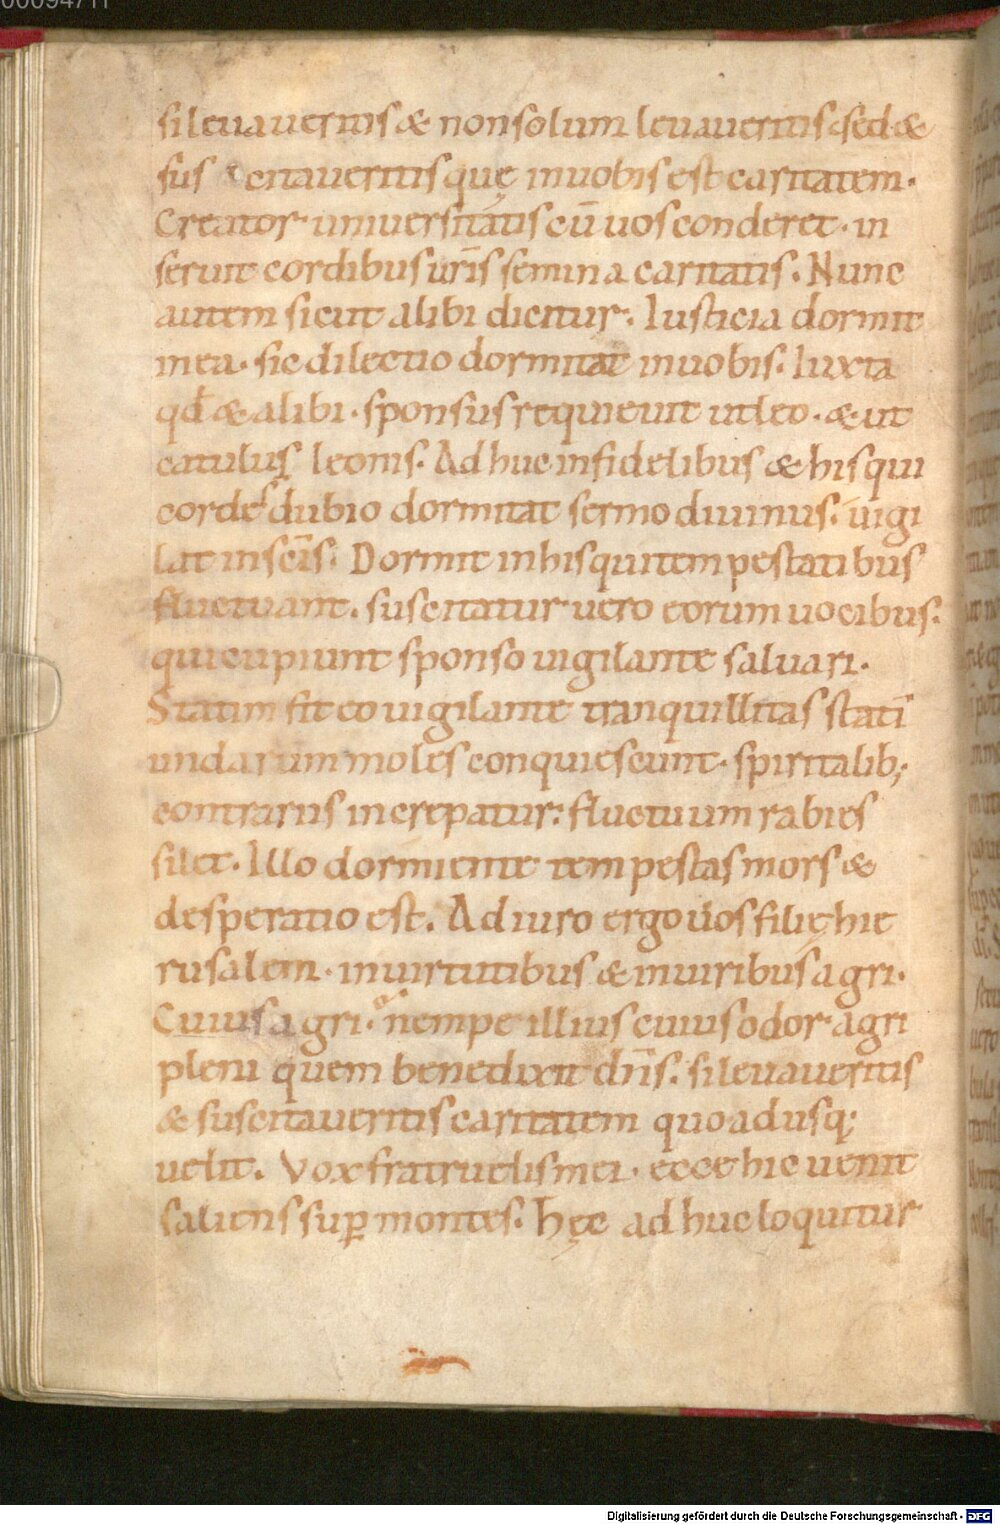 00094711
si leuaueritis & non solum leuaueritis. sed &
sus citaueritis quę in uobis est caritatem.
Creator uniuersitatis cū uos conderet. in
seruit cordibus uris̄ semina caritatis. Nunc
autem sicut alibi dicitur. Iusticia dormit
in ea. sic dilectio dormitat in uobis. Iuxta
qd̄ & alibi. sponsus requieuit ut leo. & ut
catulus leonis. Adhuc infidelibus & his qui
corde s dubio dormitat sermo diuinus. uigi
lat in sc̄is. Dormit in his qui tempestatibus
fluctuant. suscitatur uero eorum uocibus.
qui cupiunt sponso uigilante saluari.
Statim fit eo uigilante tranquillitas statī
undarum moles conquiescunt. spiritalib;
contrariis increpatur. fluctuum rabies
silet. Illo dormiente tempestas mors &
desperatio est. Adiuro ergo uos filię hie
rusalem. in uirtutibus & in uiribus agri.
Cuius agri. nempe illius cuius odor agri
pleni quem benedixit dn̄s. si leuaueritis
& suscitaueritis caritatem quo adusq;
uelit. Vox fratruelis mei. ecce hic uenit
saliens suꝑ montes. hęc adhuc loquitur
Digitalisierung gefördert durch die Deutsche Forschungsgemeinschaft - DFG